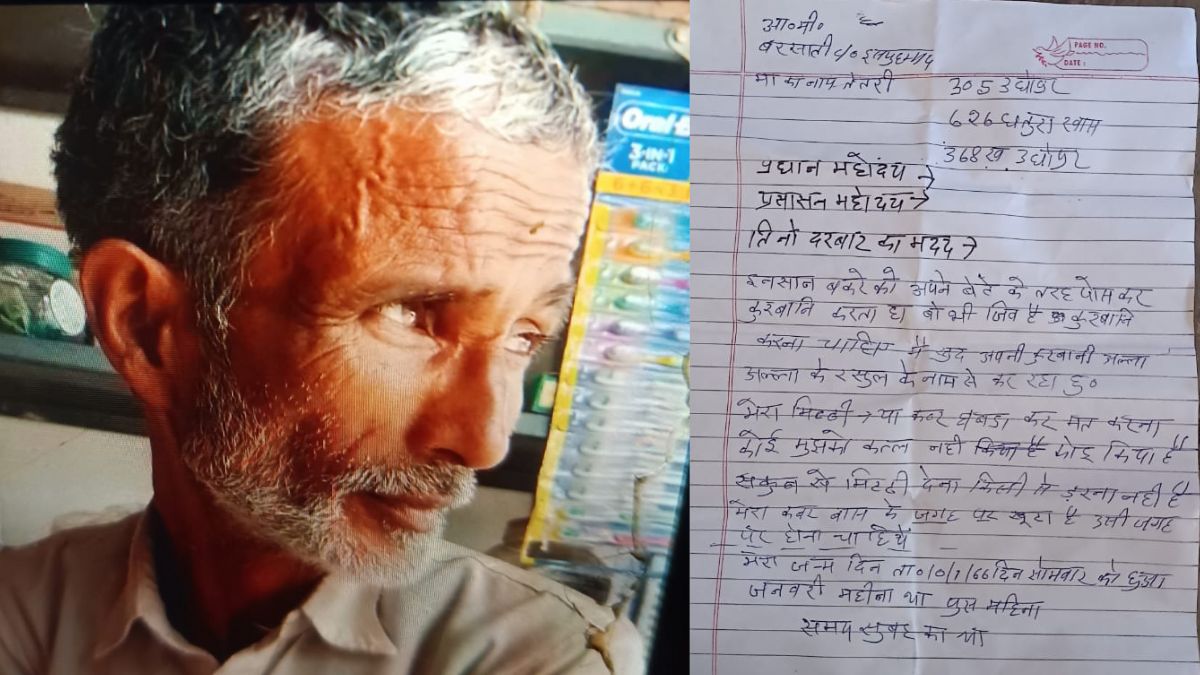 Oral-B
3-IN-1
PACK
PAGE NO.
DATE :
आ०मी०
बरसाती
मा का नाम तेतरी
प्रधान महोदय →
प्रसासन महोदय →
तिनो दरबार का मदद →
इनसान बकरे को अपने बेटे के तरह पोस कर
कुरबानि करता है। वो भी जिव है कुरबानि
करना चाहिए मै खुद अपनी कुरबानी अल्ला
अल्ला के रसुल के नाम से कर रहा हु०
मेरा मिटटी → या कबर घबड़ा कर मत करना
कोई मुझको कत्ल नही किया है कोइ किया है
सकुन से मिटटी देना किसी से डरना नही है
मेरा कबर बास के जगह पर खूटा है उसी जगह
पर होना चाहिये
मेरा जन्म दिन दिन सोमवार को हुआ
जनवरी महीना था पुस महिना
समय सुबह का था